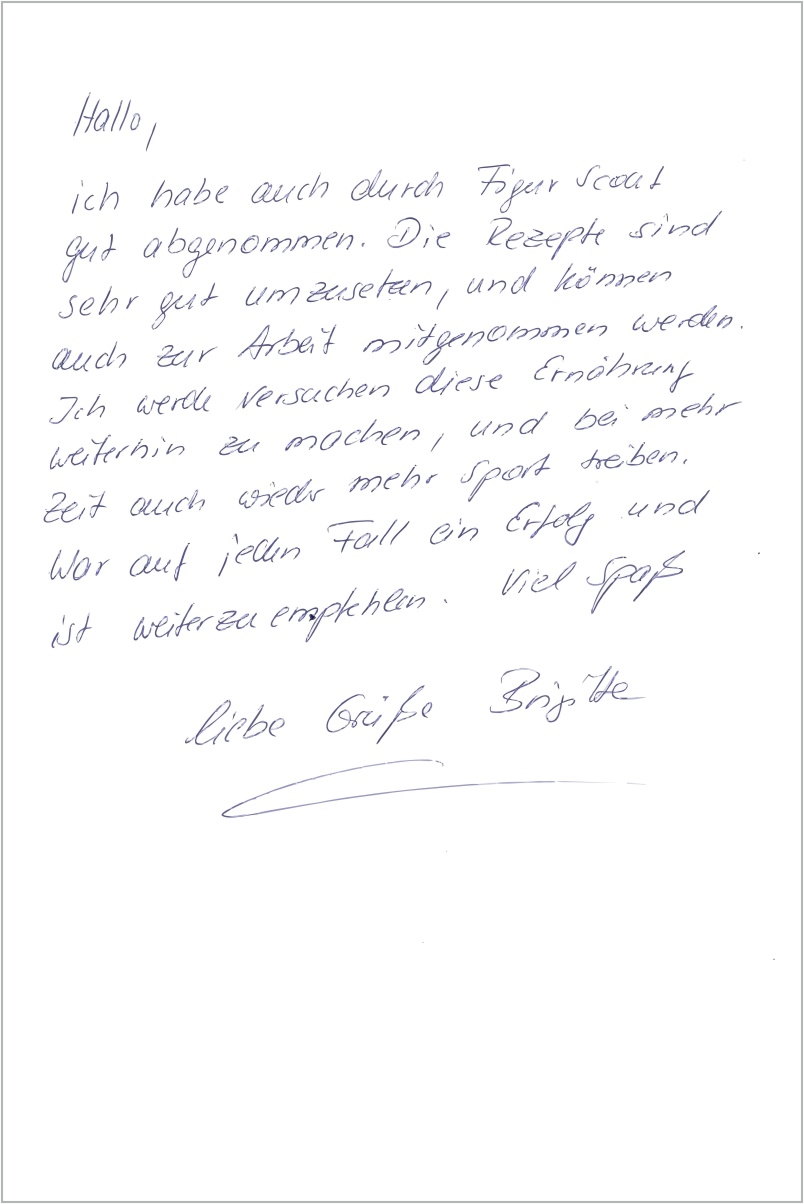 Hallo,
ich habe auch durch Figur Scout
gut abgenommen. Die Rezepte sind
sehr gut umzusetzen, und können
auch zur Arbeit mitgenommen werden.
Ich werde versuchen diese Ernährung
weiterhin zu machen, und bei mehr
Zeit auch wieder mehr Sport treiben.
War auf jeden Fall ein Erfolg und
ist weiterzuempfehlen. Viel Spaß
liebe Grüße Brigitte